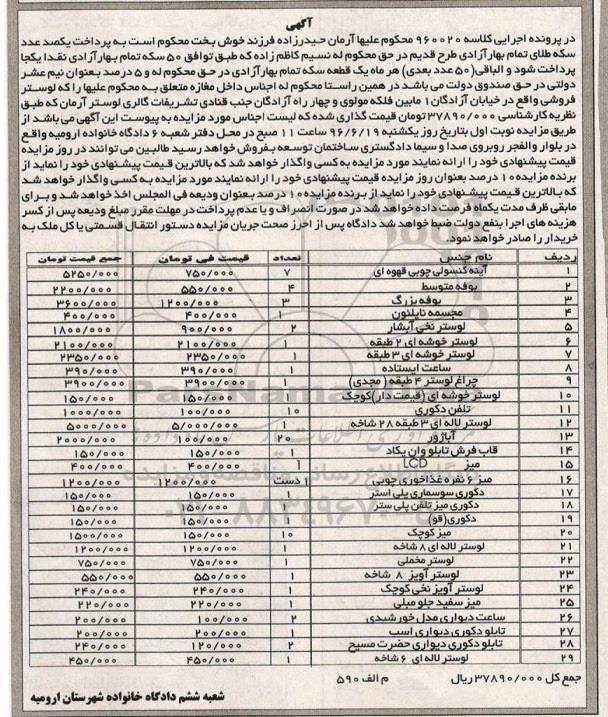 آگهی
در پرونده اجرایی کلاسه ۹۶۰۰۲۰ محکوم علیها آرمان حیدرزاده فرزند خوش بخت محکوم است به پرداخت یکصد عدد
سکه طلای تمام بهار آزادی طرح قدیم در حق محکوم له نسیم کاظم زاده که طبق توافق ۵۰ سکه تمام بهار آزادی نقدا یکجا
پرداخت شود و الباقی (۵۰ عدد بعدی) هر ماه یک قطعه سکه تمام بهار آزادی در حق محکوم له و ۵ درصد بعنوان نیم عشر
دولتی در حق صندوق دولت می باشد در همین راستا محکوم له اجناس داخل مغازه متعلق به محکوم علیها را که لوستر
فروشی واقع در خیابان آزادگان ۱ مابین فلکه مولوی و چهار راه آزادگان جنب قنادی تشریفات گالری لوستر آرمان که طبق
نظریه کارشناسی ۳۷۸۹۰/۰۰۰ تومان قیمت گذاری شده که لیست اجناس مورد مزایده به پیوست این آگهی می باشد از
طریق مزایده نوبت اول بتاریخ روز یکشنبه ۹۶/۶/۱۹ ساعت ۱۱ صبح در محل دفتر شعبه ۶ دادگاه خانواده ارومیه واقع
در بلوار والفجر روبروی صدا و سیما دادگستری ساختمان توسعه بفروش خواهد رسید طالبین می توانند در روز مزایده
قیمت پیشنهادی خود را ارائه نمایند مورد مزایده به کسی واگذار خواهد شد که بالاترین قیمت پیشنهادی خود را نماید از
برنده مزایده ۱۰ درصد بعنوان روز مزایده قیمت پیشنهادی خود را ارائه نمایند مورد مزایده به کسی واگذار خواهد شد
که بالاترین قیمت پیشنهادی خود را نماید از برنده مزایده ۱۰ درصد بعنوان ودیعه فی المجلس اخذ خواهد شد و برای
مابقی ظرف مدت یکماه فرصت داده خواهد شد در صورت انصراف و یا عدم پرداخت در مهلت مقرر مبلغ ودیعه پس از کسر
هزینه های اجرا بنفع دولت ضبط خواهد شد دادگاه پس از احرز صحت جریان مزایده دستور انتقال قسمتی یا کل ملک به
خریدار را صادر خواهد نمود.
ردیف نام جنس تعداد قیمت فی تومان جمع قیمت تومان
۱ آینه کنسولی چوبی قهوه ای ۷ ۷۵۰/۰۰۰ ۵۲۵۰/۰۰۰
۲ بوفه متوسط ۴ ۵۵۰/۰۰۰ ۲۲۰۰/۰۰۰
۳ بوفه بزرگ ۳ ۱۲۰۰/۰۰۰ ۳۶۰۰/۰۰۰
۴ مجسمه ناپلئون ۱ ۴۰۰/۰۰۰ ۴۰۰/۰۰۰
۵ لوستر نخی آبشار ۲ ۹۰۰/۰۰۰ ۱۸۰۰/۰۰۰
۶ لوستر خوشه ای ۲ طبقه ۱ ۲۱۰۰/۰۰۰ ۲۱۰۰/۰۰۰
۷ لوستر خوشه ای ۳ طبقه ۱ ۲۳۵۰/۰۰۰ ۲۳۵۰/۰۰۰
۸ ساعت ایستاده ۱ ۳۹۰/۰۰۰ ۳۹۰/۰۰۰
۹ چراغ لوستر ۴ طبقه (مجدی) ۱ ۳۹۰۰/۰۰۰ ۳۹۰۰/۰۰۰
۱۰ لوستر خوشه ای (قیمت دار) کوچک ۱ ۱۵۰/۰۰۰ ۱۵۰/۰۰۰
۱۱ تلفن دکوری ۱۰ ۱۰۰/۰۰۰ ۱۰۰۰/۰۰۰
۱۲ لوستر لاله ای ۳ طبقه ۲۸ شاخه ۱ ۵/۰۰۰/۰۰۰ ۵۰۰۰/۰۰۰
۱۳ آباژور ۲۰ ۱۰۰/۰۰۰ ۲۰۰۰/۰۰۰
۱۴ قاب فرش تابلو وان یکاد ۱ ۱۵۰/۰۰۰ ۱۵۰/۰۰۰
۱۵ میز LCD ۱ ۴۰۰/۰۰۰ ۴۰۰/۰۰۰
۱۶ میز ۶ نفره غذاخوری چوبی ۱ دست ۱۲۰۰/۰۰۰ ۱۲۰۰/۰۰۰
۱۷ دکوری سوسماری پلی استر ۱ ۱۵۰/۰۰۰ ۱۵۰/۰۰۰
۱۸ دکوری میز تلفن پلی ستر ۱ ۱۵۰/۰۰۰ ۱۵۰/۰۰۰
۱۹ دکوری (قو) ۱ ۱۵۰/۰۰۰ ۱۵۰/۰۰۰
۲۰ میز کوچک ۱۰ ۱۵۰/۰۰۰ ۱۵۰۰/۰۰۰
۲۱ لوستر لاله ای ۸ شاخه ۱ ۱۲۰۰/۰۰۰ ۱۲۰۰/۰۰۰
۲۲ لوستر مخملی ۱ ۷۵۰/۰۰۰ ۷۵۰/۰۰۰
۲۳ لوستر آویز ۸ شاخه ۱ ۵۵۰/۰۰۰ ۵۵۰/۰۰۰
۲۴ لوستر آویز نخی کوچک ۱ ۲۴۰/۰۰۰ ۲۴۰/۰۰۰
۲۵ میز سفید جلو مبلی ۱ ۲۲۰/۰۰۰ ۲۲۰/۰۰۰
۲۶ ساعت دیواری مدل خورشیدی ۲ ۱۰۰/۰۰۰ ۲۰۰/۰۰۰
۲۷ تابلو دکوری دیواری اسب ۱ ۲۰۰/۰۰۰ ۲۰۰/۰۰۰
۲۸ تابلو دکوری دیواری حضرت مسیح ۲ ۱۲۰/۰۰۰ ۲۴۰/۰۰۰
۲۹ لوستر لاله ای ۶ شاخه ۱ ۴۵۰/۰۰۰ ۴۵۰/۰۰۰
جمع کل ۳۷۸۹۰/۰۰۰ ریال م الف ۵۹۰
شعبه ششم دادگاه خانواده شهرستان ارومیه